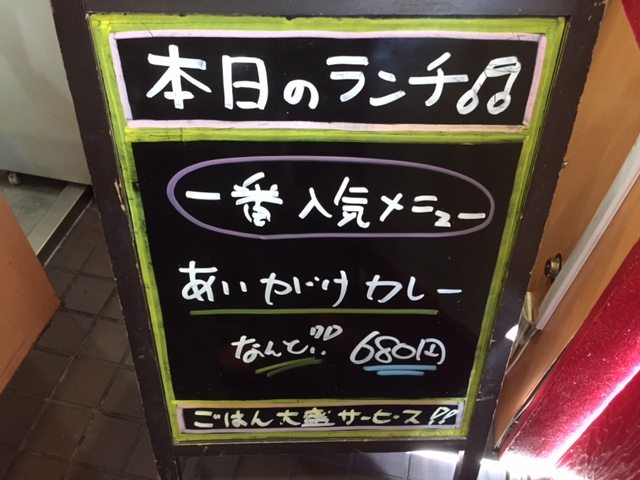 本日のランチ♫
一番人気メニュー
あいがけカレー
なんと!! 680円
ごはん大盛サービス!!